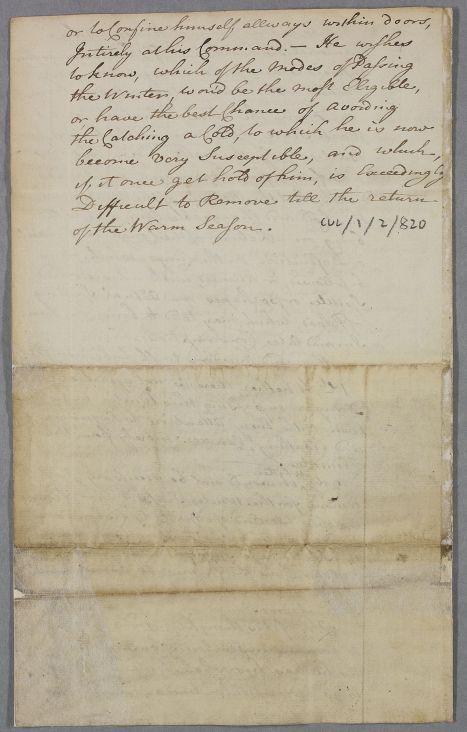 or to Confine himself allways within doors,
Intirely at his Command. — He wishes
to know, which of the Modes of Passing
the Winter, wou'd be the most Eligible,
or have the best Chance of avoiding
the Catching a Cold, to which he is now
become very Susceptible, and which,
if it once get hold of him, is Exceedingly
Difficult to Remove till the return
of the Warm Season.
CUL/1/2/820